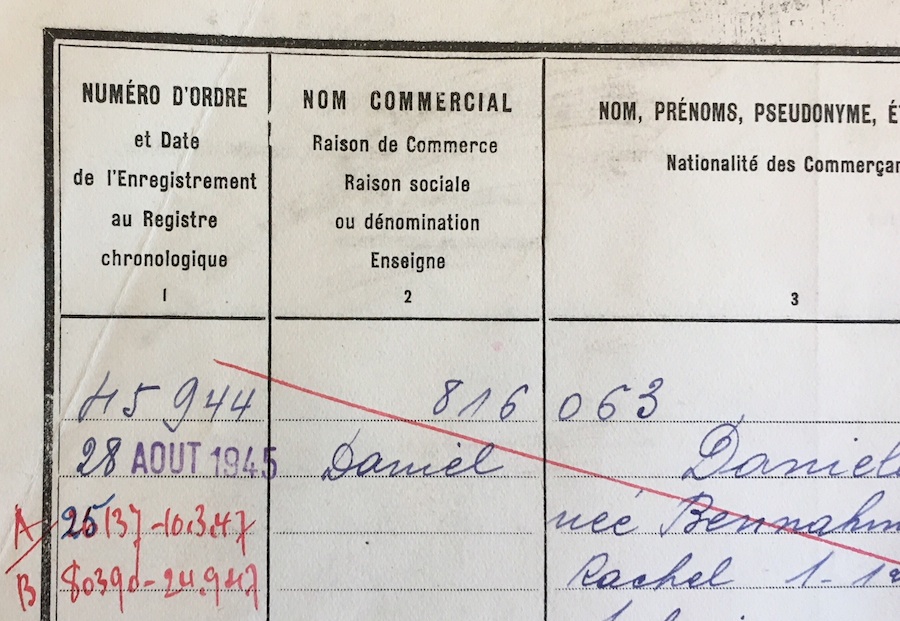 NUMÉRO D'ORDRE
et Date
de l'Enregistrement
au Registre
chronologique
1
NOM COMMERCIAL
Raison de Commerce
Raison sociale
ou dénomination
Enseigne
2
NOM, PRÉNOMS, PSEUDONYME,
Nationalité des
3
45944 816 063
28 AOUT 1945 Daniel
née
A 137-10.3.47
B 80390-24.9.47 Rachel